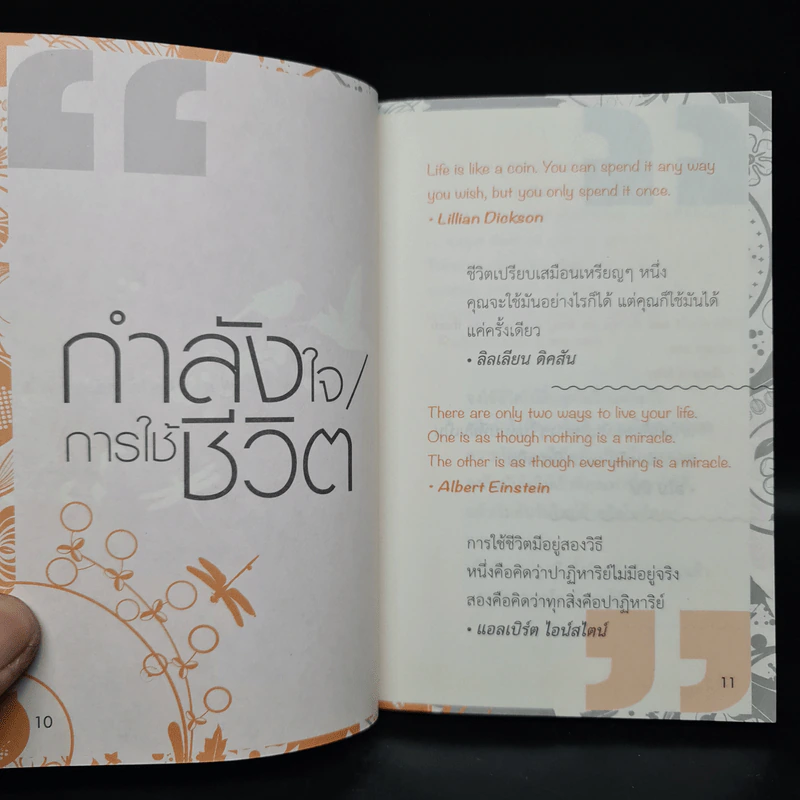 กำลังใจ/
การใช้ชีวิต
10
Life is like a coin. You can spend it any way
you wish, but you only spend it once.
• Lillian Dickson
ชีวิตเปรียบเสมือนเหรียญๆ หนึ่ง
คุณจะใช้มันอย่างไรก็ได้ แต่คุณก็ใช้มันได้
แค่ครั้งเดียว
• ลิลเลียน ดิคสัน
There are only two ways to live your life.
One is as though nothing is a miracle.
The other is as though everything is a miracle.
• Albert Einstein
การใช้ชีวิตมีอยู่สองวิธี
หนึ่งคือคิดว่าปาฏิหาริย์ไม่มีอยู่จริง
สองคือคิดว่าทุกสิ่งคือปาฏิหาริย์
• แอลเบิร์ต ไอน์สไตน์
11